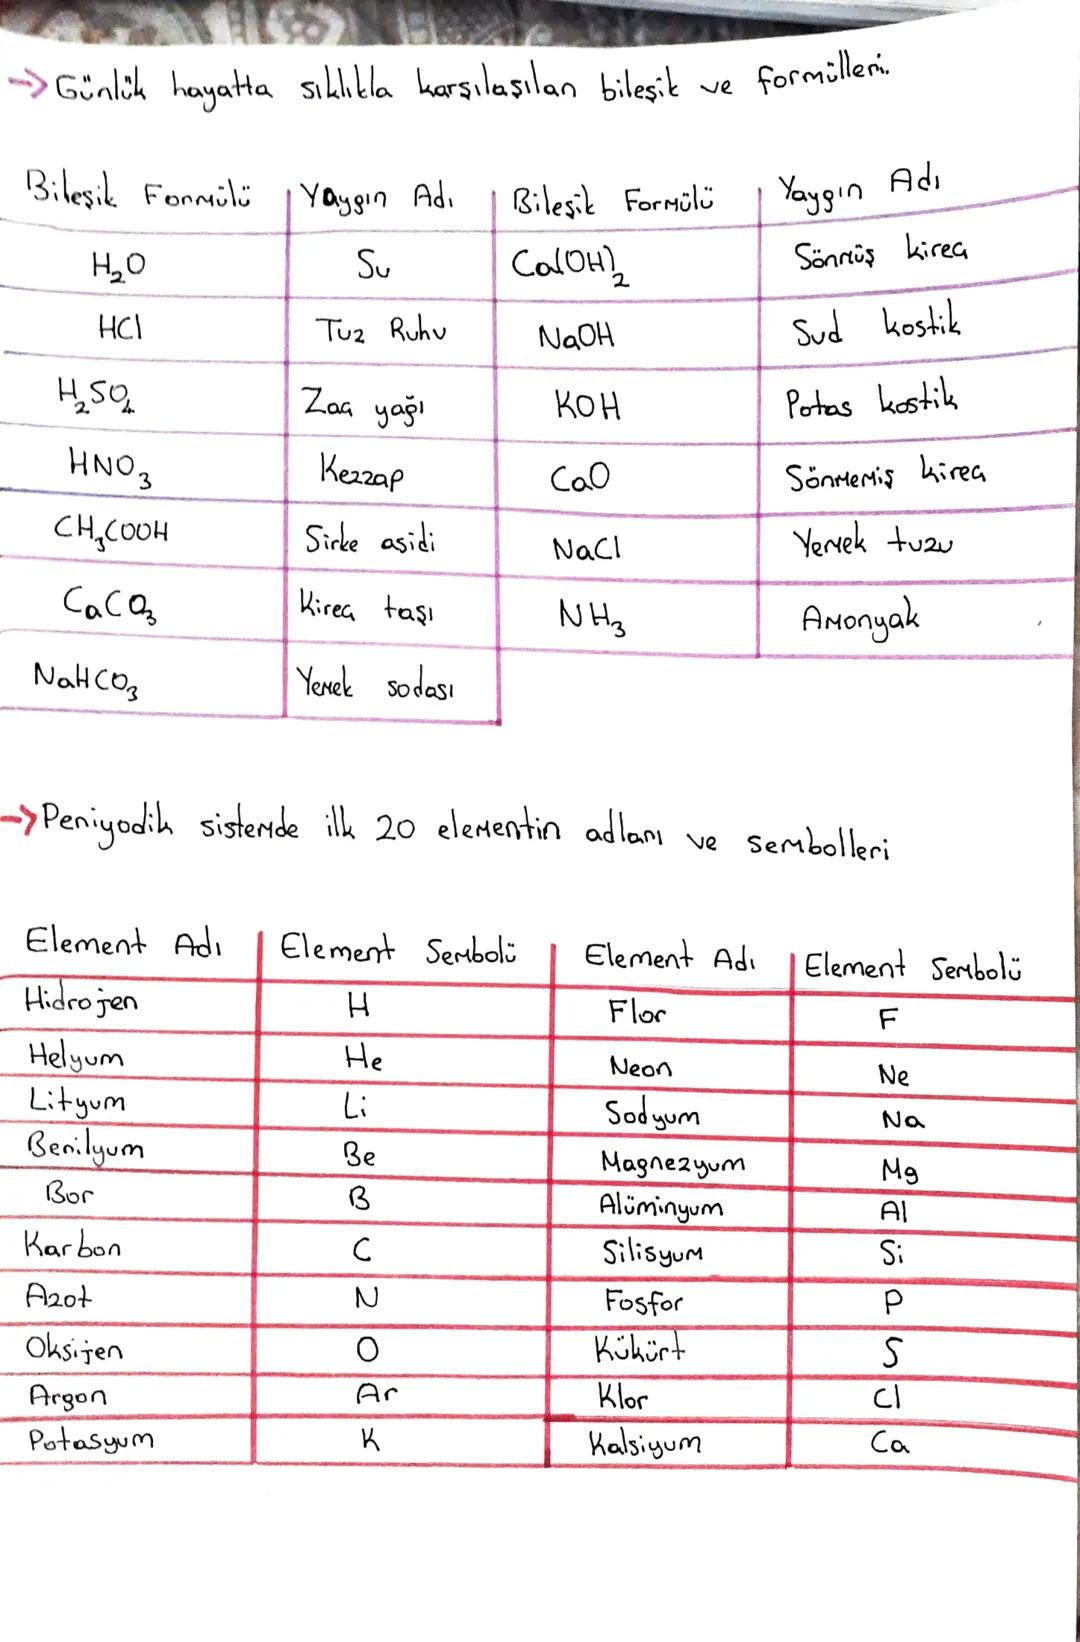 → Günlük hayatta sıklıkla karşılaşılan bileşik ve formülleri.
Bileşik Formülü Yaygın Adı Bileşik Formülü Yaygın Adı
H₂O Su Ca(OH)₂ Sönmüş kireç
HCl Tuz Ruhu NaOH Sud kostik
H₂SO₄ Zaç yağı KOH Potas kostik
HNO₃ Kezzap CaO Sönmemiş kireç
CH₃COOH Sirke asidi NaCl Yemek tuzu
CaCO₃ Kireç taşı NH₃ Amonyak
NaHCO₃ Yemek sodası
→ Periyodik sistemde ilk 20 elementin adları ve sembolleri
Element Adı Element Sembolü Element Adı Element Sembolü
Hidrojen H Flor F
Helyum He Neon Ne
Lityum Li Sodyum Na
Berilyum Be Magnezyum Mg
Bor B Alüminyum Al
Karbon C Silisyum Si
Azot N Fosfor P
Oksijen O Kükürt S
Argon Ar Klor Cl
Potasyum K Kalsiyum Ca